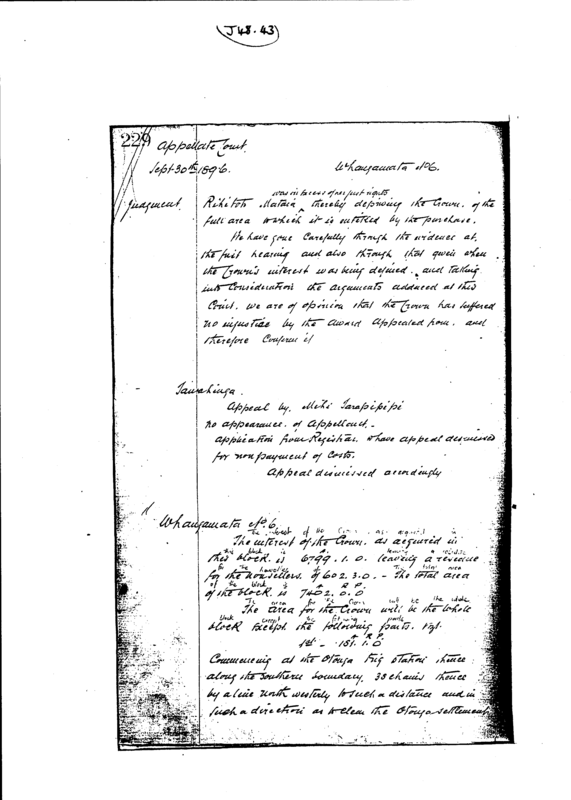 J48.43
229
Appellate Court.
Sept 30th 1896. Whangamata No 6.
was in excess of her just rights
Judgment Rihitoh Mataia thereby depriving the Crown of the
full area to which it is entitled by the purchase.
We have gone carefully through the evidence at
the first hearing and also through that given when
the Crown's interest was being defined, and taking
into consideration the arguments adduced at this
Court. we are of opinion that the Crown has suffered
no injustice by the award appealed from. and
therefore confirm it
Tauwhinga.
Appeal by. Mihi Tarapipipi
no appearance of Appellant. -
application from Registrar to have appeal dismissed
for non payment of costs.
Appeal dismissed accordingly
Whangamata No. 6
The interest of the Crown as acquired in
The interest of the Crown. as acquired in
this block is leaving a residue
this block is 6799.1.0. leaving a residue
for the nonsellers The total area
for the nonsellers. of 602.3.0. - The total area
of the block is A R P
of the block. is 7402.0.0
The area for the Crown will be the whole
The area for the Crown will be the whole
block except the following parts
block except the following parts. vizt.
A R P
1st - 151.1.0
Commencing at the Otonga trig station thence
along the southern boundary 38 chains thence
by a line north westerly to such a distance and in
such a direction as to clear the Otonga settlement